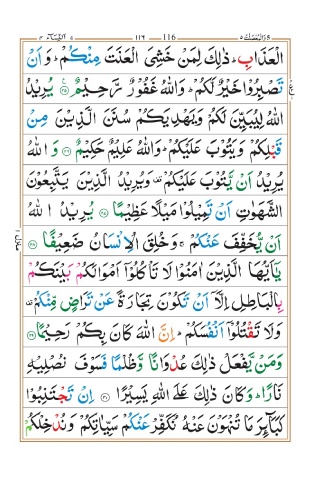 النسآء ٤ ١١٦ 116 والمحصنت ٥
الْعَذَابِ ؕ ذٰلِكَ لِمَنْ خَشِیَ الْعَنَتَ مِنْكُمْ ؕ وَ اَنْ
تَصْبِرُوْا خَیْرٌ لَّكُمْ ؕ وَ اللّٰهُ غَفُوْرٌ رَّحِیْمٌ ۟﴿۲۵﴾ یُرِیْدُ
اللّٰهُ لِیُبَیِّنَ لَكُمْ وَ یَهْدِیَكُمْ سُنَنَ الَّذِیْنَ مِنْ
قَبْلِكُمْ وَ یَتُوْبَ عَلَیْكُمْ ؕ وَ اللّٰهُ عَلِیْمٌ حَكِیْمٌ ﴿۲۶﴾ وَ اللّٰهُ
یُرِیْدُ اَنْ یَّتُوْبَ عَلَیْكُمْ ۫ وَ یُرِیْدُ الَّذِیْنَ یَتَّبِعُوْنَ
الشَّهَوٰتِ اَنْ تَمِیْلُوْا مَیْلًا عَظِیْمًا ﴿۲۷﴾ یُرِیْدُ اللّٰهُ
اَنْ یُّخَفِّفَ عَنْكُمْ ۚ وَ خُلِقَ الْاِنْسَانُ ضَعِیْفًا ﴿۲۸﴾
یٰۤاَیُّهَا الَّذِیْنَ اٰمَنُوْا لَا تَاْكُلُوْۤا اَمْوَالَكُمْ بَیْنَكُمْ
بِالْبَاطِلِ اِلَّاۤ اَنْ تَكُوْنَ تِجَارَةً عَنْ تَرَاضٍ مِّنْكُمْ ۫
وَ لَا تَقْتُلُوْۤا اَنْفُسَكُمْ ؕ اِنَّ اللّٰهَ كَانَ بِكُمْ رَحِیْمًا ﴿۲۹﴾
وَ مَنْ یَّفْعَلْ ذٰلِكَ عُدْوَانًا وَّ ظُلْمًا فَسَوْفَ نُصْلِیْهِ
نَارًا ؕ وَ كَانَ ذٰلِكَ عَلَی اللّٰهِ یَسِیْرًا ﴿۳۰﴾ اِنْ تَجْتَنِبُوْا
كَبَآىِٕرَ مَا تُنْهَوْنَ عَنْهُ نُكَفِّرْ عَنْكُمْ سَیِّاٰتِكُمْ وَ نُدْخِلْكُمْ